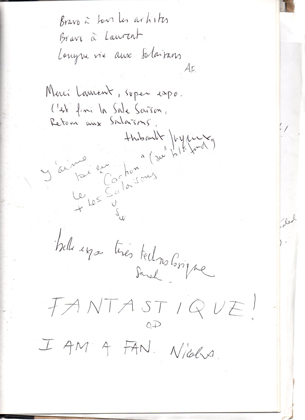 Bravo à tous les artistes
Bravo à Laurent
Longue vie aux Salaisons
Merci Laurent, super expo.
C'est fini la Sale Saison.
Retour aux Salaisons.
Thibault
J'aime
le Carbon
+ les Salaisons
belle expo très technologique
Sarah.
FANTASTIQUE!
I AM A FAN. Nicolas